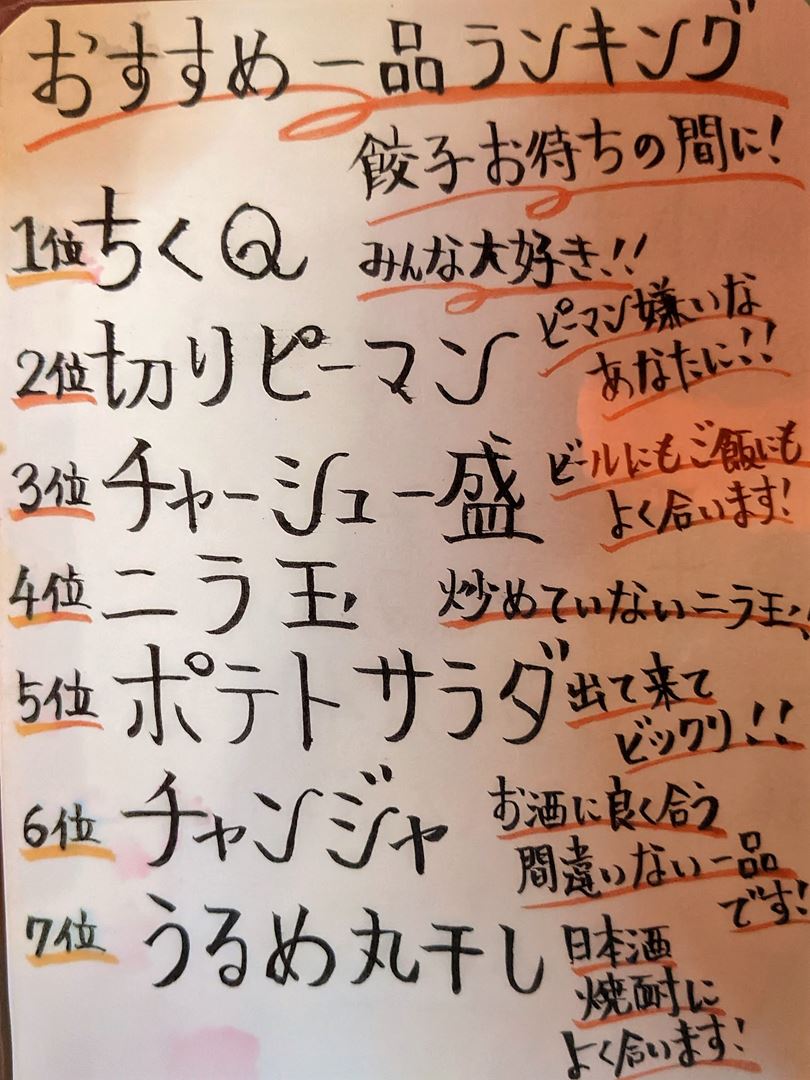 おすすめ一品ランキング
餃子お待ちの間に!
1位 ちくQ みんな大好き!!
2位 切りピーマン ピーマン嫌いな
あなたに!!
3位 チャーシュー盛 ビールにもご飯にも
よく合います!
4位 ニラ玉 炒めていないニラ玉!
5位 ポテトサラダ 出て来て
ビックリ!!
6位 チャンジャ お酒に良く合う
間違いない一品
です!
7位 うるめ丸干し 日本酒
焼酎に
よく合います!